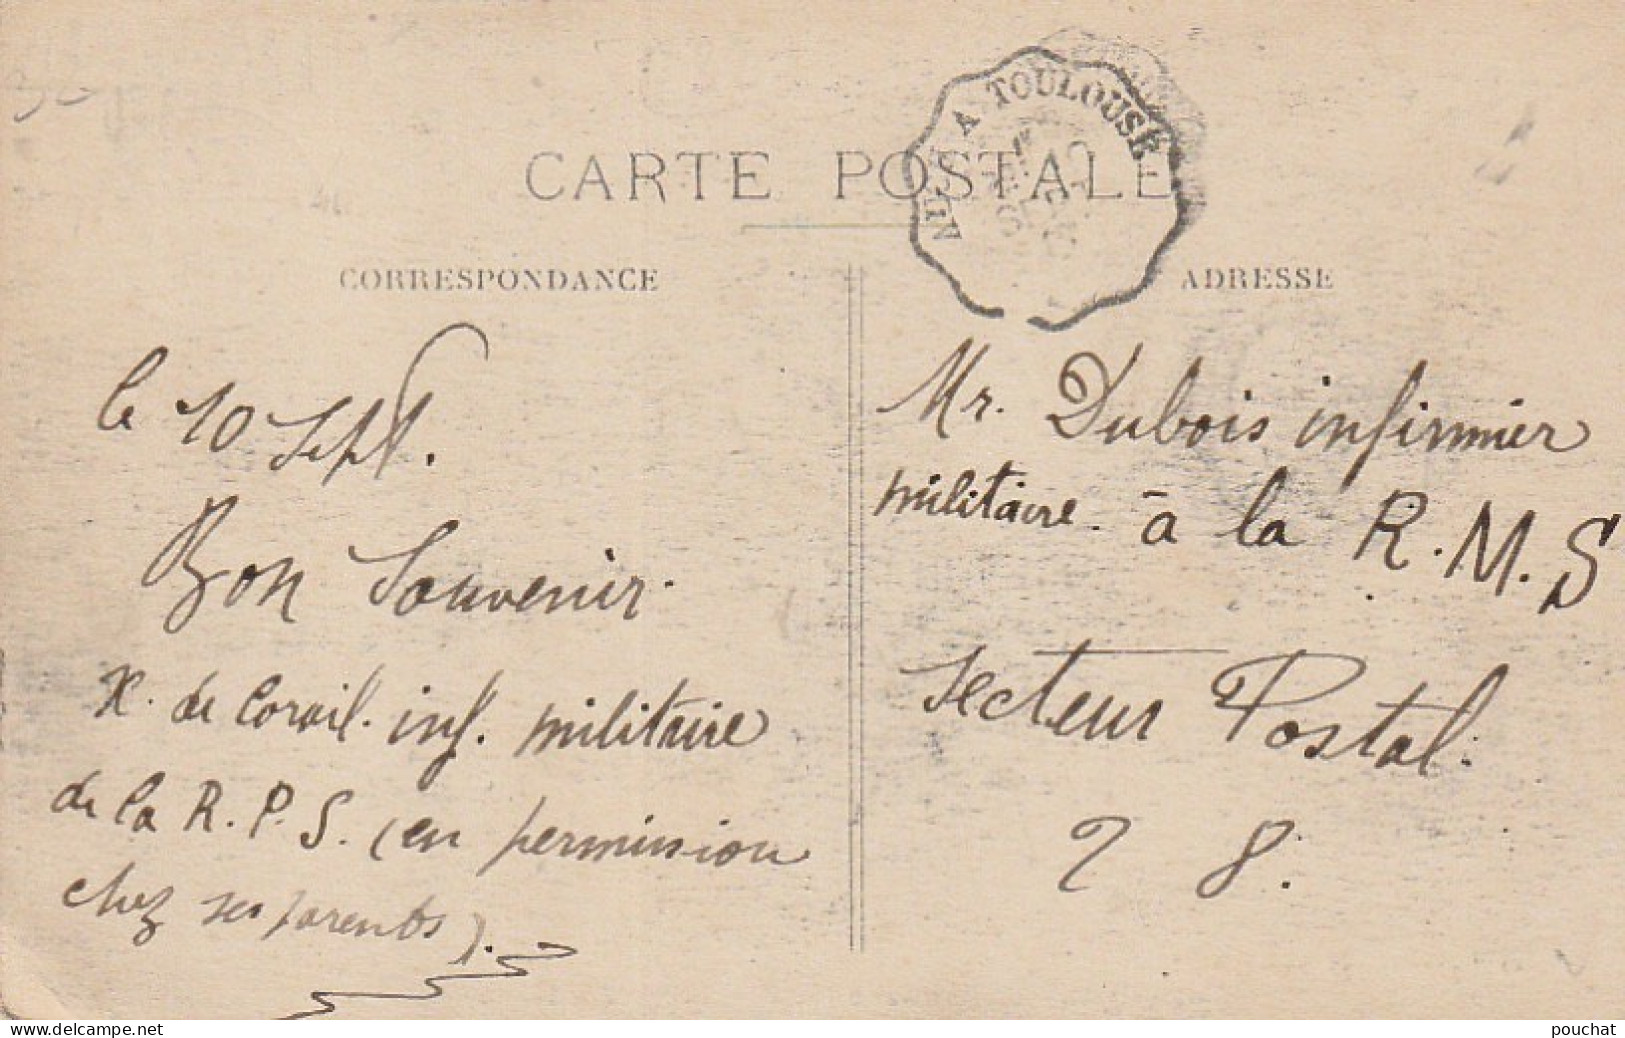 A TOULOUSE
CARTE POSTALE
CORRESPONDANCE
le 10 Sept.
Bon Souvenir.
X. de Corail. inf. militaire
de la R. P. S. (en permission
chez ses parents).
ADRESSE
Mr. Dubois infirmier
militaire. à la R. M. S
Secteur Postal.
2 8.
www.delcampe.net
pouchat